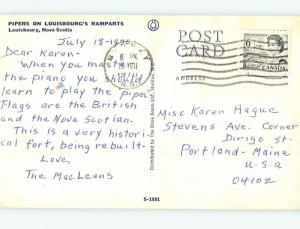 PIPERS ON LOUISBOURG'S RAMPARTS
Louisbourg, Nova Scotia
July 18-1970
Dear Karen-
When you master
the piano you should
learn to play the pipes.
Flags are the British
and the Nova Scotian.
This is a very historical
fort, being rebuilt-
Love,
The MacLeans
Distributed by The Book Room Ltd., Halifax
POST
CARD
ADDRESS
6
CANADA
Miss Karen Hague
Stevens Ave. Corner
Dirigo St.
Portland - Maine
U.S.A
04102
S-1881